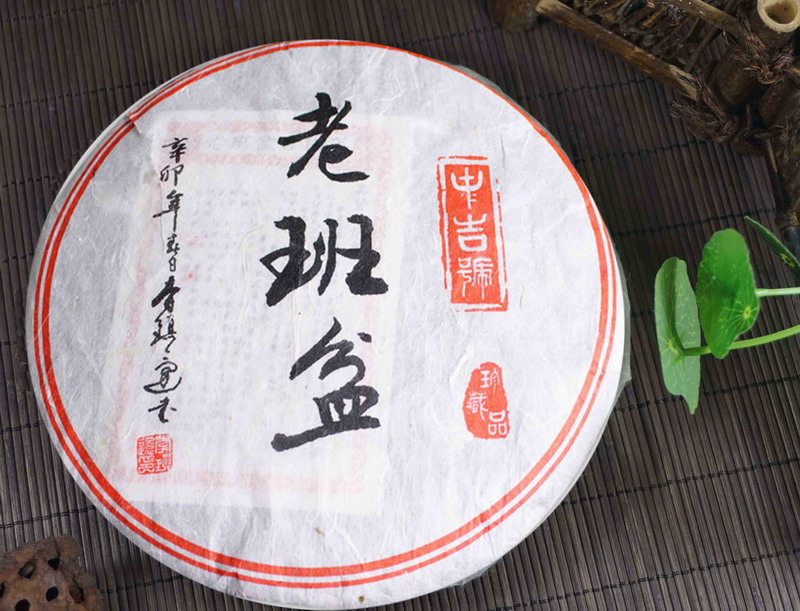 中吉號
珍藏品
老班盆
辛卯年春日李鎮